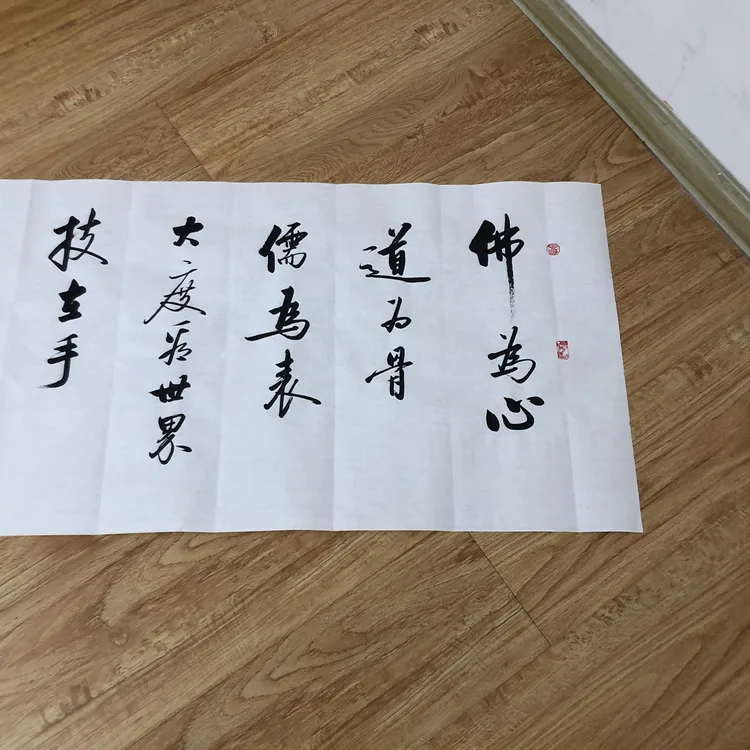 佛為心
道为骨
儒為表
大度看世界
技在手